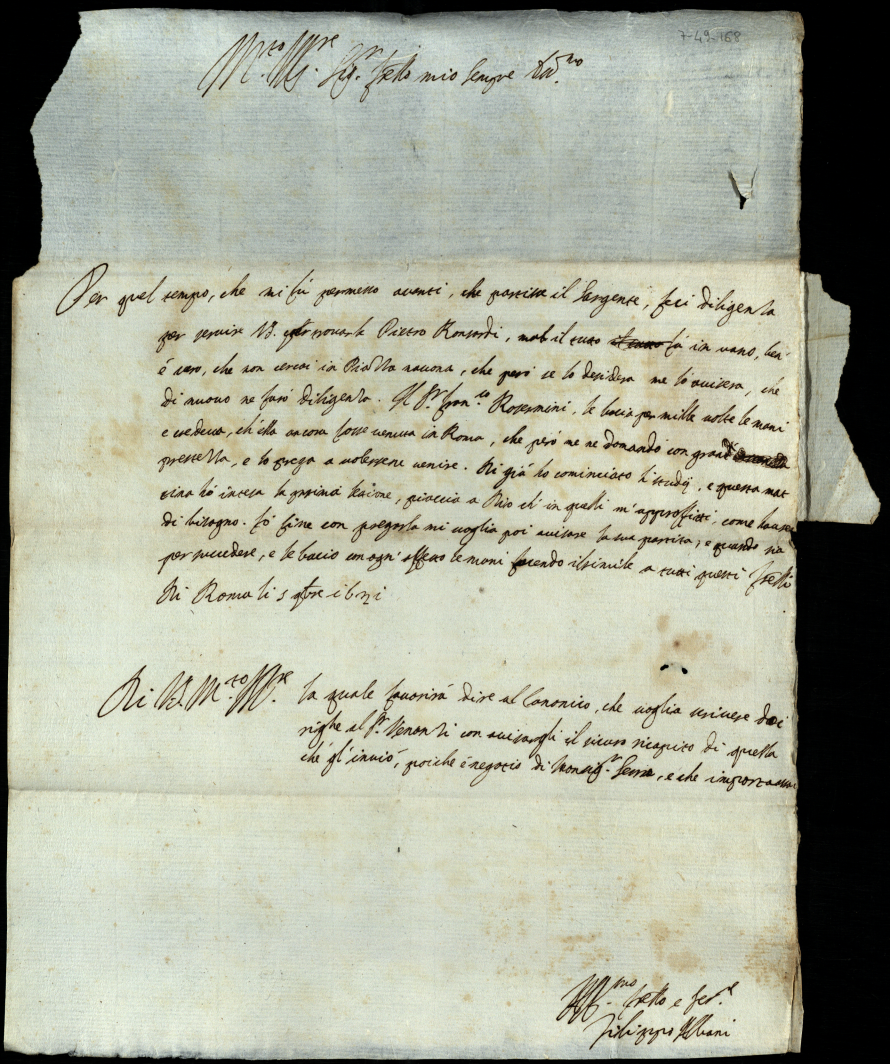 7-49-168
M.to Ill.re Sig.r fr̃ello mio sempre oss.mo
Per quel tempo, che mi fù permesso avanti, che partisse il Sargente, feci diligenza
per servire V.S. per trovarle Pietro Ronsardi, mà il tutto fù in vano, ben
è vero, che non cercai in Piazza navona, che però se lo desidera me lo avisera, che
di nuovo ne farò diligenza. Il S.r Fran.co Rosermini, le bacia per mille volte le mani
e credeva, ch'ella ancora fosse venuta in Roma, che però me ne domandò con grand
prestezza, e lo prega a volersene venire. Di già ho cominciato li studij, e questa mat
tina hò intesa la prima lezione, piaccia a Dio ch'in quelli m'approfitti, come havre
di bisogno. fò fine con pregarla mi voglia poi avisare la sua partita, e quando sia
per succedere, e le bacio con ogn' affetto le mani facendo il simile a tutti questi fr̃elli
Di Roma li 5 9bre
Di V.S. M.to Ill.re la quale favorirà dire al Canonico, che voglia scrivere doi
righe al S.r con avisargli il sicuro ricapito di quella
che gl'inviò, poiche è negotio di Monsig.r e che importa assai
fr̃ello e ser.e
Filippo Albani